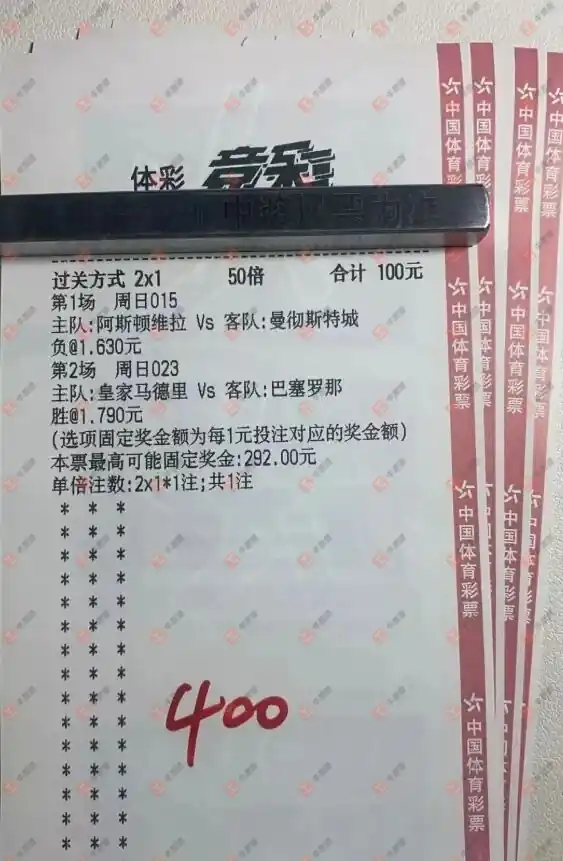 体彩 竞彩
过关方式 2x1 50倍 合计 100元
第1场 周日015
主队:阿斯顿维拉 Vs 客队:曼彻斯特城
负@1.630元
第2场 周日023
主队:皇家马德里 Vs 客队:巴塞罗那
胜@1.790元
(选项固定奖金额为每1元投注对应的奖金额)
本票最高可能固定奖金:292.00元
单倍注数:2x1*1注;共1注
* * *
* * *
* * *
* * *
* * *
* * *
* * *
* * *
* * *
* * *
* * *
* * *
* * *
* * *
* * *
400
中国体育彩票
中国体育彩票
中国体育彩票
中国体育彩票
中国体育彩票
中国体育彩票
中国体育彩票
中国体育彩票
中国体育彩票
中国体育彩票